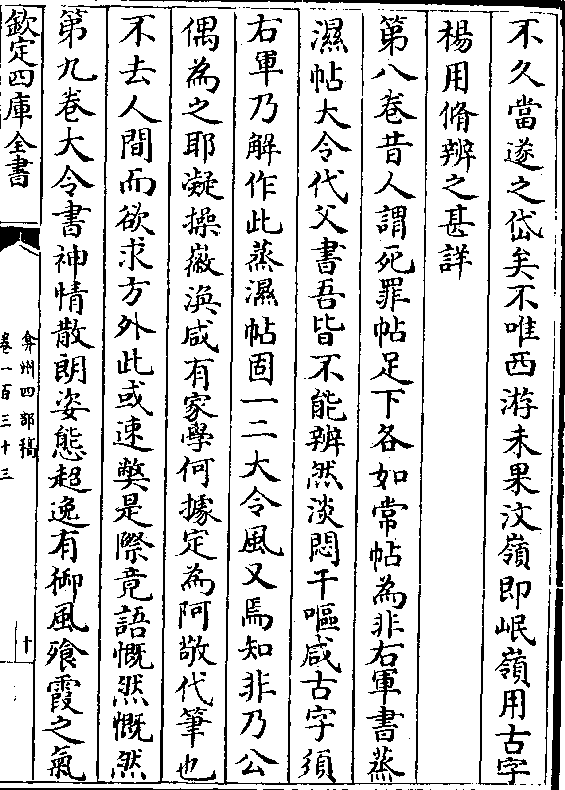 不久當遂之岱矣不唯西游未果汶嶺即岷嶺用古字
楊用脩辨之甚詳
第八卷昔人謂死罪帖足下各如常帖為非右軍書蒸
濕帖大令代父書吾皆不能辨然淡悶干嘔咸古字須
右軍乃解作此蒸濕帖固一二大令風又焉知非乃公
偶為之耶凝操徽渙咸有家學何據定為阿敬代筆也
不去人間而欲求方外此或速弊是際竟語慨然慨然
第九卷大令書神情散朗姿態超逸有御風飱霞之氣
欽定四庫全書
弇州四部稿
卷一百三十三
十